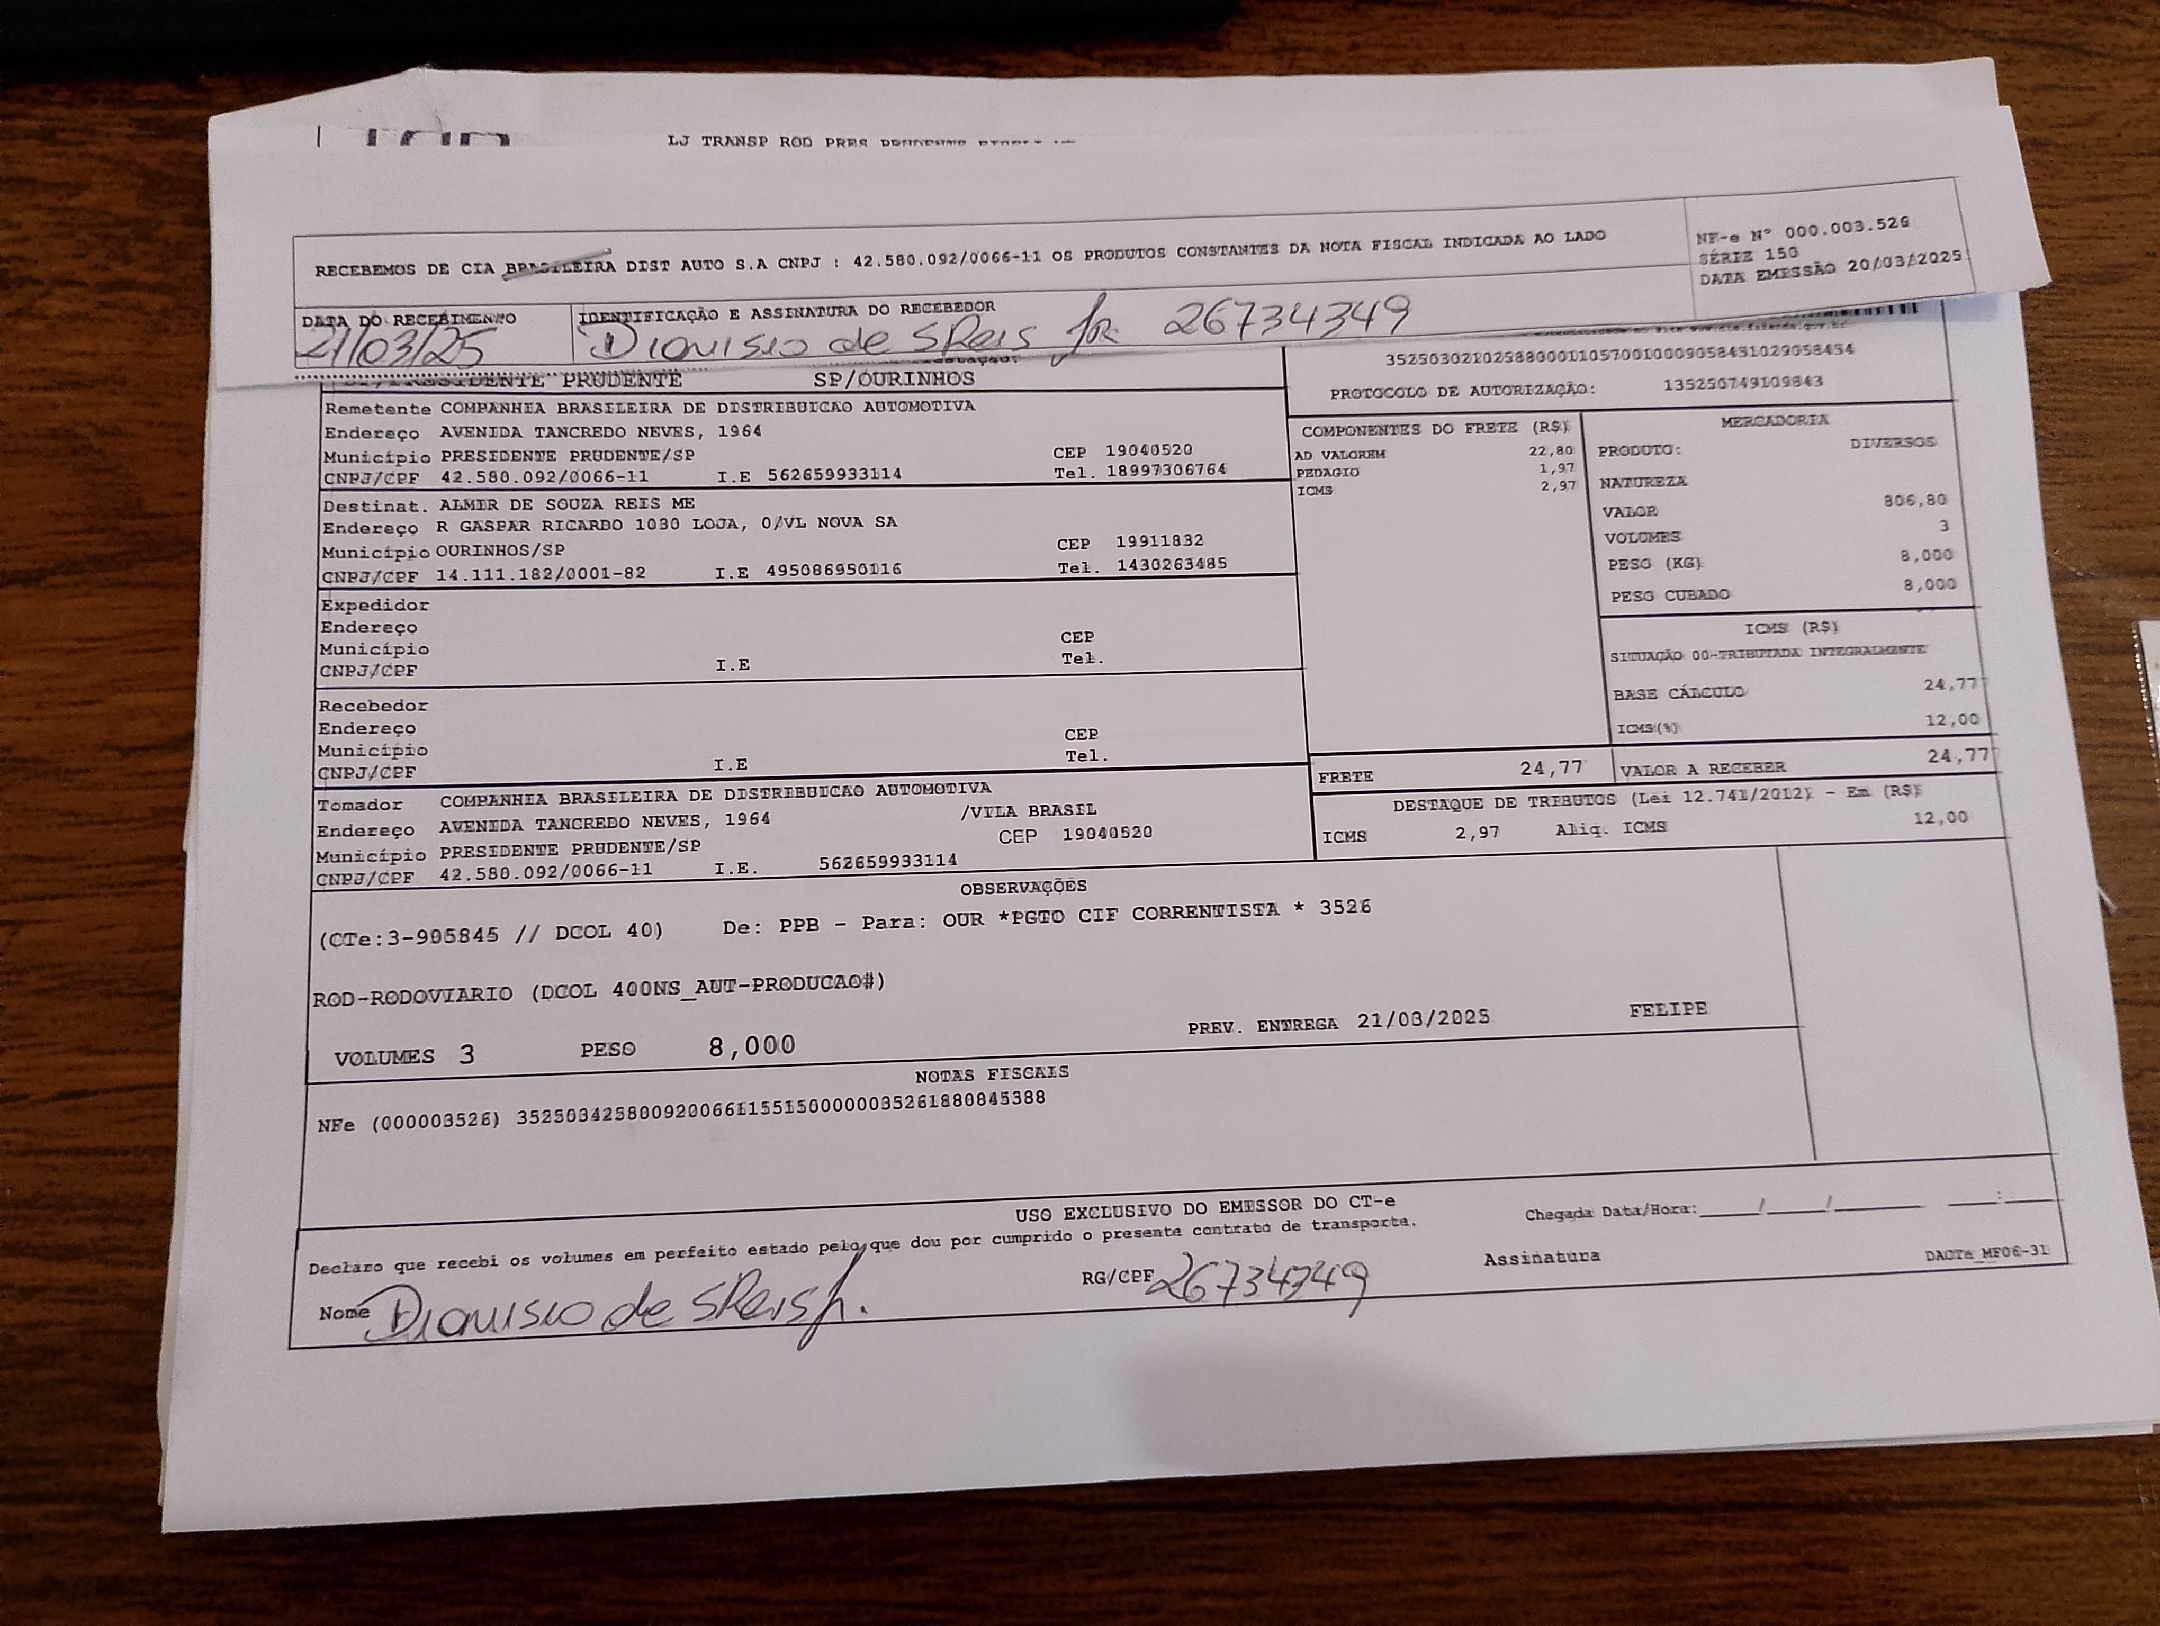 LJ TRANSP ROD PRES
RECEBEMOS DE CIA BRASILEIRA DIST AUTO S.A CNPJ : 42.580.092/0066-11 OS PRODUTOS CONSTANTES DA NOTA FISCAL INDICADA AO LADO
NF-e Nº 000.003.526
SÉRIE 150
DATA EMISSÃO 20/03/2025
DATA DO RECEBIMENTO
21/03/25
IDENTIFICAÇÃO E ASSINATURA DO RECEBEDOR
Dionisio de S Reis Jr. 26734349
PRESIDENTE PRUDENTE SP/OURINHOS
PROTOCOLO DE AUTORIZAÇÃO: 135250749109843
Remetente COMPANHIA BRASILEIRA DE DISTRIBUICAO AUTOMOTIVA
Endereço AVENIDA TANCREDO NEVES, 1964
Município PRESIDENTE PRUDENTE/SP CEP 19040520
CNPJ/CPF 42.580.092/0066-11 I.E 562659933114 Tel. 18997306764
Destinat. ALMIR DE SOUZA REIS ME
Endereço R GASPAR RICARDO 1030 LOJA, 0/VL NOVA SA
Município OURINHOS/SP CEP 19911832
CNPJ/CPF 14.111.182/0001-82 I.E 495086950116 Tel. 1430263485
Expedidor
Endereço
Município CEP
CNPJ/CPF I.E Tel.
Recebedor
Endereço
Município CEP
CNPJ/CPF I.E Tel.
Tomador COMPANHIA BRASILEIRA DE DISTRIBUICAO AUTOMOTIVA
Endereço AVENIDA TANCREDO NEVES, 1964 /VILA BRASIL
Município PRESIDENTE PRUDENTE/SP CEP 19040520
CNPJ/CPF 42.580.092/0066-11 I.E. 562659933114
COMPONENTES DO FRETE (R$)
AD VALOREM 22,80
PEDAGIO 1,97
ICMS 2,97
MERCADORIA
PRODUTO: DIVERSOS
NATUREZA
VALOR 806,80
VOLUMES 3
PESO (KG) 8,000
PESO CUBADO 8,000
ICMS (R$)
SITUAÇÃO 00-TRIBUTADA INTEGRALMENTE
BASE CÁLCULO 24,77
ICMS(%) 12,00
FRETE 24,77 VALOR A RECEBER 24,77
DESTAQUE DE TRIBUTOS (Lei 12.741/2012) - Em (R$)
ICMS 2,97 Aliq. ICMS 12,00
OBSERVAÇÕES
(CTe:3-905845 // DCOL 40) De: PPB - Para: OUR *PGTO CIF CORRENTISTA * 3526
ROD-RODOVIARIO (DCOL 400NS_AUT-PRODUCAO#)
VOLUMES 3 PESO 8,000 PREV. ENTREGA 21/03/2025 FELIPE
NOTAS FISCAIS
NFe (000003526) 35250342580092006611551500000035261880845388
USO EXCLUSIVO DO EMISSOR DO CT-e
Declaro que recebi os volumes em perfeito estado pelo que dou por cumprido o presente contrato de transporte.
Chegada Data/Hora:____/____/______ ___:____
Nome Dionisio de S Reis Jr. RG/CPF 26734349 Assinatura
DACTe_MF06-31